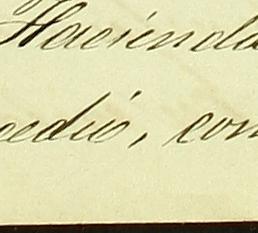 Hacienda
edio, con